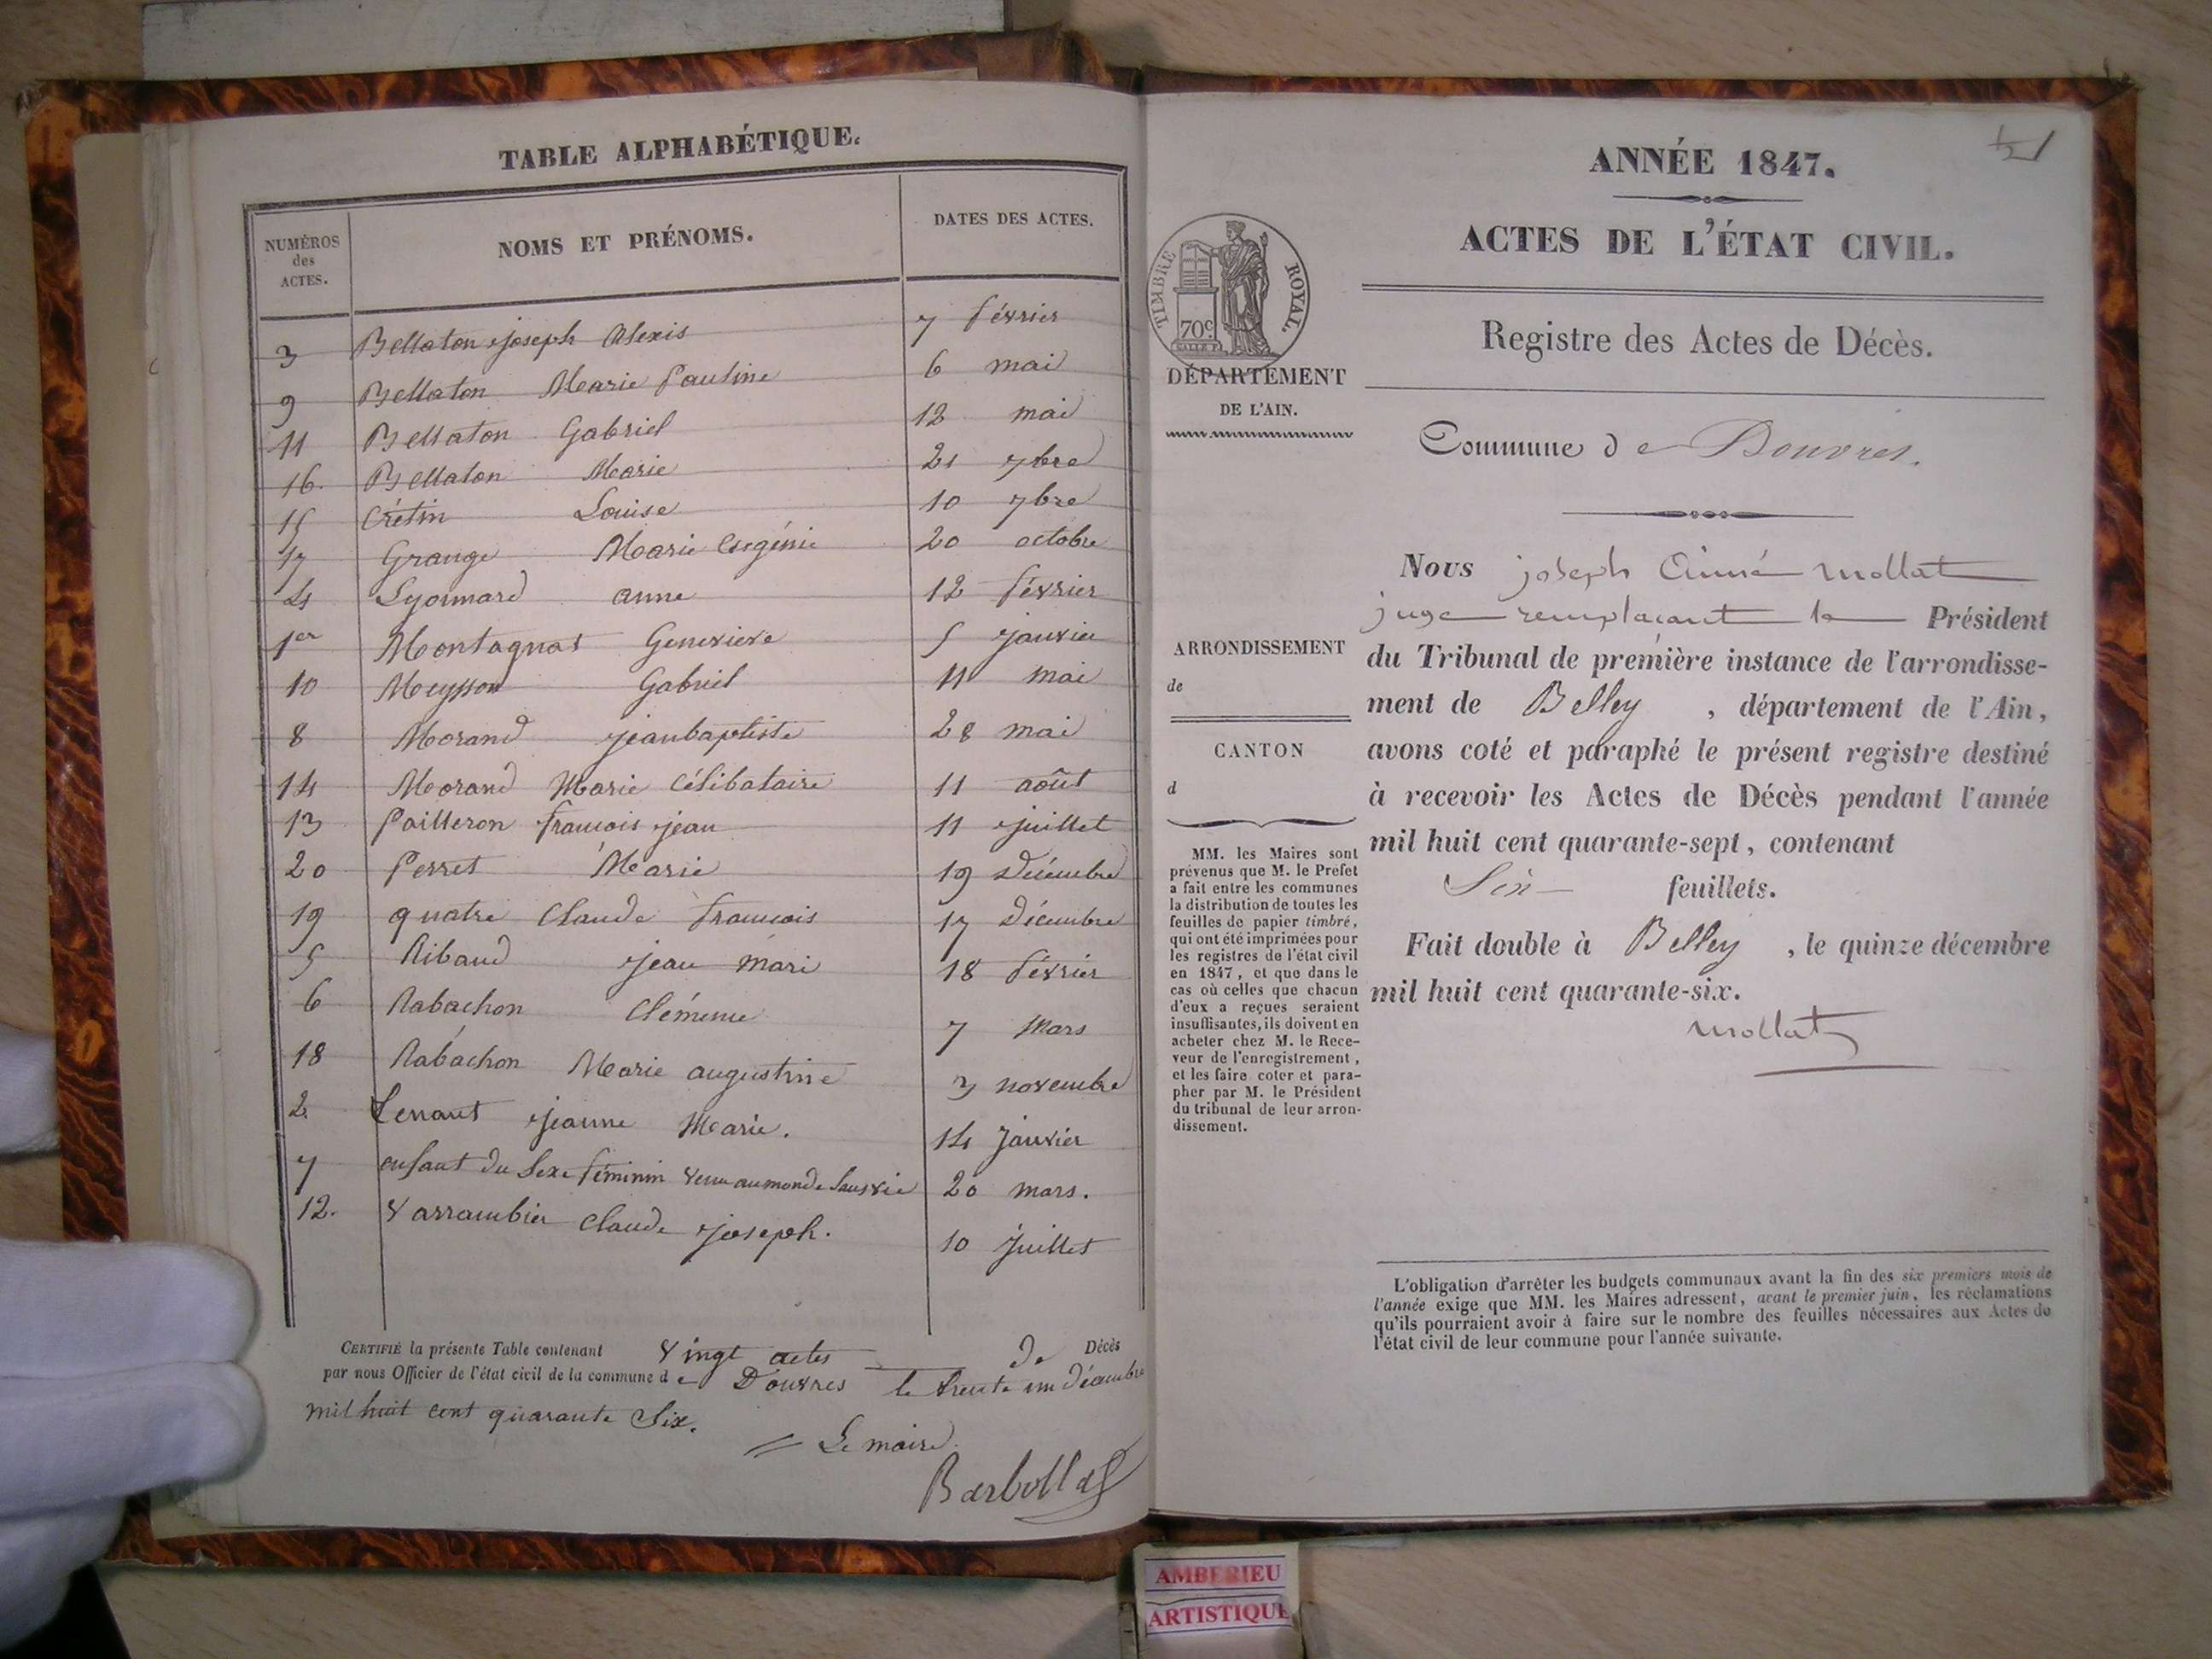 TABLE ALPHABÉTIQUE.
NUMÉROS des ACTES. NOMS ET PRÉNOMS. DATES DES ACTES.
3 Bellaton joseph Alexis 7 février
9 Bellaton Marie Pauline 6 mai
11 Bellaton Gabriel 12 mai
16. Bellaton Marie 21 7bre
15 Crétin Louise 10 7bre
17 Grange Marie Eugénie 20 octobre
4 Lyonnard anne 12 février
1er Montagnat Genevieve 5 janvier
10 Meysson Gabriel 11 mai
8 Morand jean baptiste 28 mai
14 Morand Marie Célibataire 11 août
13 Pailleron françois jean 11 juillet
20 Perret Marie 19 décembre
19 quatre Claude françois 17 décembre
5 Ribaud jean mari 18 février
6 Rabachon Clémence 7 Mars
18 Rabachon Marie augustine 3 novembre
2. Tenant jeanne Marie. 14 Janvier
7 enfant du Sexe féminin venu au monde Sans vie 20 mars.
12. Varrambier Claude joseph. 10 Juillet
CERTIFIÉ la présente Table contenant Vingt actes de Décès
par nous Officier de l'état civil de la commune de Douvres le trente un décembre
mil huit cent quarante Six.
Le maire
ANNÉE 1847.
ACTES DE L'ÉTAT CIVIL.
TIMBRE ROYAL.
70c
Registre des Actes de Décès.
DÉPARTEMENT
DE L'AIN.
Commune de Douvres.
ARRONDISSEMENT
de
CANTON
d
MM. les Maires sont
prévenus que M. le Préfet
a fait entre les communes
la distribution de toutes les
feuilles de papier timbré,
qui ont été imprimées pour
les registres de l'état civil
en 1847, et que dans le
cas où celles que chacun
d'eux a reçues seraient
insuffisantes, ils doivent en
acheter chez M. le Rece-
veur de l'enregistrement,
et les faire coter et para-
pher par M. le Président
du tribunal de leur arron-
dissement.
Nous joseph Aimé mollat
juge remplacant le Président
du Tribunal de première instance de l'arrondisse-
ment de Belley , département de l'Ain,
avons coté et paraphé le présent registre destiné
à recevoir les Actes de Décès pendant l'année
mil huit cent quarante-sept, contenant
Six feuillets.
Fait double à Belley , le quinze décembre
mil huit cent quarante-six.
mollat
L'obligation d'arrêter les budgets communaux avant la fin des six premiers mois de
l'année exige que MM. les Maires adressent, avant le premier juin, les réclamations
qu'ils pourraient avoir à faire sur le nombre des feuilles nécessaires aux Actes de
l'état civil de leur commune pour l'année suivante.
AMBERIEU
ARTISTIQUE